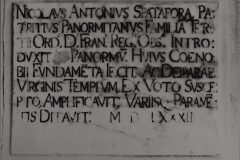 NICOLAVS ANTONIVS SPATAFORA, PA
TRITIVS PANORMITANVS FAMILIA TER
TII ORD. D. FRAN. REG. OBS. INTRO
DVXIT PANORMV. HVIVS COENO
BII FVNDAMETA IECIT AC DEIPARAE
VIRGINIS TEMPLVM, EX VOTO SVSCE
PTO, AMPLIFICAVIT, VARIISQ. PARAME
TIS DITAVIT. M D LXXXII